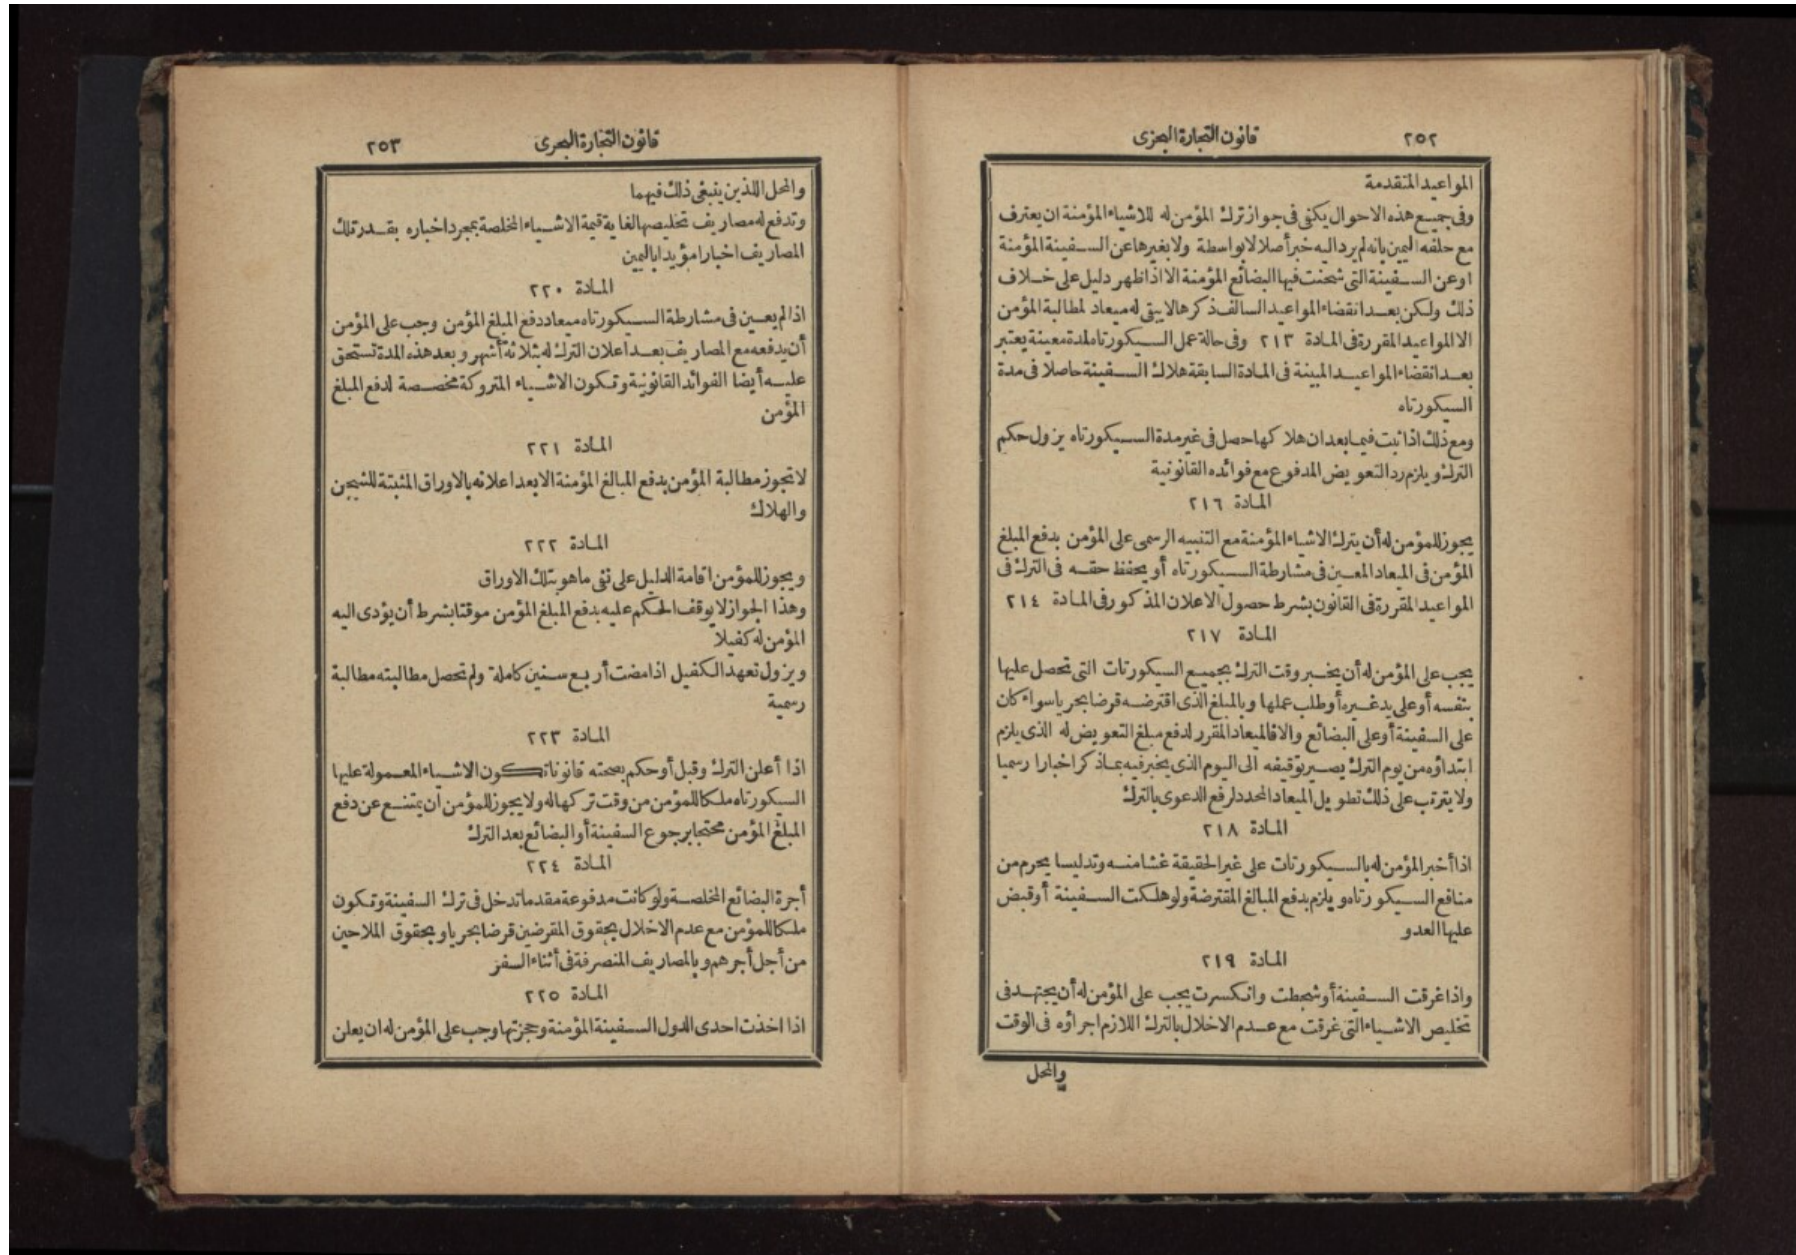 ٢٥٢
قانون التجارة البحرى
المواعيد المتقدمة
وفى جميع هذه الاحوال يكفى فى جواز ترك المؤمن له للاشياء المؤمنة ان يعترف
مع حلفه اليمين بانه لم يرد اليه خبر أصلا لا بواسطة ولا بغيرها عن السفينة المؤمنة
او عن السفينة التى شحنت فيها البضائع المؤمنة الا اذا ظهر دليل على خلاف
ذلك ولكن بعد انقضاء المواعيد السالف ذكرها لا يبقى له ميعاد لمطالبة المؤمن
الا المواعيد المقررة فى المادة ٢١٣ وفى حالة عمل السيكورتاه لمدة معينة يعتبر
بعد انقضاء المواعيد المبينة فى المادة السابقة هلاك السفينة حاصلا فى مدة
السيكورتاه
ومع ذلك اذا ثبت فيما بعد ان هلاكها حصل فى غير مدة السيكورتاه يزول حكم
الترك ويلزم رد التعويض المدفوع مع فوائده القانونية
المادة ٢١٦
يجوز للمؤمن له أن يترك الاشياء المؤمنة مع التنبيه الرسمى على المؤمن بدفع المبلغ
المؤمن فى الميعاد المعين فى مشارطة السيكورتاه أو يحفظ حقه فى الترك فى
المواعيد المقررة فى القانون بشرط حصول الاعلان المذكور فى المادة ٢١٤
المادة ٢١٧
يجب على المؤمن له أن يخبر وقت الترك بجميع السيكورتات التى تحصل عليها
بنفسه أو على يد غيره أو طلب عملها وبالمبلغ الذى اقترضه قرضا بحريا سواء كان
على السفينة أو على البضائع والا فالميعاد المقرر لدفع مبلغ التعويض له الذى يلزم
ابتداؤه من يوم الترك يصير توقيفه الى اليوم الذى يخبر فيه بما ذكر اخبارا رسميا
ولا يترتب على ذلك تطويل الميعاد المحدد لرفع الدعوى بالترك
المادة ٢١٨
اذا أخبر المؤمن له بالسيكورتات على غير الحقيقة غشا منه وتدليسا يحرم من
منافع السيكورتاه ويلزم بدفع المبالغ المقترضة ولو هلكت السفينة أو قبض
عليها العدو
المادة ٢١٩
واذا غرقت السفينة أو شحطت وانكسرت يجب على المؤمن له أن يجتهد فى
تخليص الاشياء التى غرقت مع عدم الاخلال بالترك اللازم اجراؤه فى الوقت
والمحل
قانون التجارة البحرى
٢٥٣
والمحل اللذين ينبغى ذلك فيهما
وتدفع له مصاريف تخليصها لغاية قيمة الاشياء المخلصة بمجرد اخباره بقدر تلك
المصاريف اخبارا مؤيدا باليمين
المادة ٢٢٠
اذا لم يعين فى مشارطة السيكورتاه ميعاد دفع المبلغ المؤمن وجب على المؤمن
أن يدفعه مع المصاريف بعد اعلان الترك له بثلاثة أشهر وبعد هذه المدة تستحق
عليه أيضا الفوائد القانونية وتكون الاشياء المتروكة مخصصة لدفع المبلغ
المؤمن
المادة ٢٢١
لا تجوز مطالبة المؤمن بدفع المبالغ المؤمنة الا بعد اعلانه بالاوراق المثبتة للشحن
والهلاك
المادة ٢٢٢
ويجوز للمؤمن اقامة الدليل على نفى ما هو بتلك الاوراق
وهذا الجواز لا يوقف الحكم عليه بدفع المبلغ المؤمن موقتا بشرط أن يؤدى اليه
المؤمن له كفيلا
ويزول تعهد الكفيل اذا مضت أربع سنين كاملة ولم تحصل مطالبته مطالبة
رسمية
المادة ٢٢٣
اذا أعلن الترك وقبل أو حكم بصحته قانونا تكون الاشياء المعمولة عليها
السيكورتاه ملكا للمؤمن من وقت تركها له ولا يجوز للمؤمن أن يمتنع عن دفع
المبلغ المؤمن محتجا برجوع السفينة أو البضائع بعد الترك
المادة ٢٢٤
أجرة البضائع المخلصة ولو كانت مدفوعة مقدما تدخل فى ترك السفينة وتكون
ملكا للمؤمن مع عدم الاخلال بحقوق المقرضين قرضا بحريا وبحقوق الملاحين
من أجل أجرهم وبالمصاريف المنصرفة فى أثناء السفر
المادة ٢٢٥
اذا اخذت احدى الدول السفينة المؤمنة وحجزتها وجب على المؤمن له ان يعلن